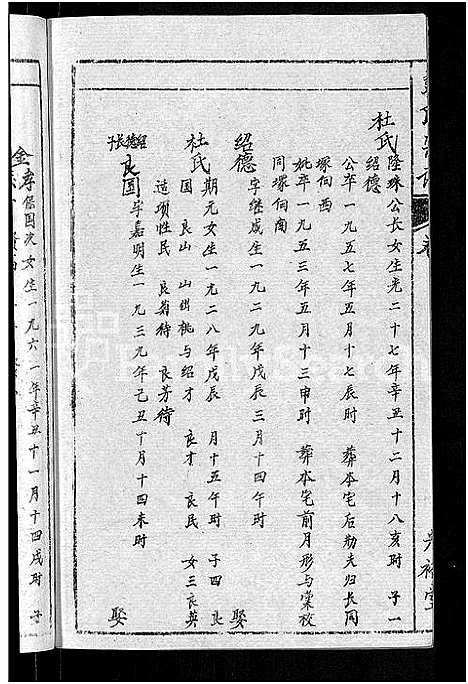 杜氏隆珠公长女生光二十七年辛丑十二月十八亥时 子一
绍德
公卒一九五七年五月十七辰时 葬本宅后勘夫归长同
塚向西
妣卒一九五三年五月十三申时 葬本宅前月形与棠校
同塚向南
绍德 字继成生一九二九年戊辰三月十四午时 娶
杜氏 期元女生一九二八年戊辰 月十五午时 子四 良
国 良山 山出桃与绍才 良才 良民 女三良英
造项性民 良菊待 良芳待
绍德长子 良国 字嘉明生一九三九年己丑丁月十四未时 娶
金 孝保国次女生一九六一年辛丑十一月十四戌时 子